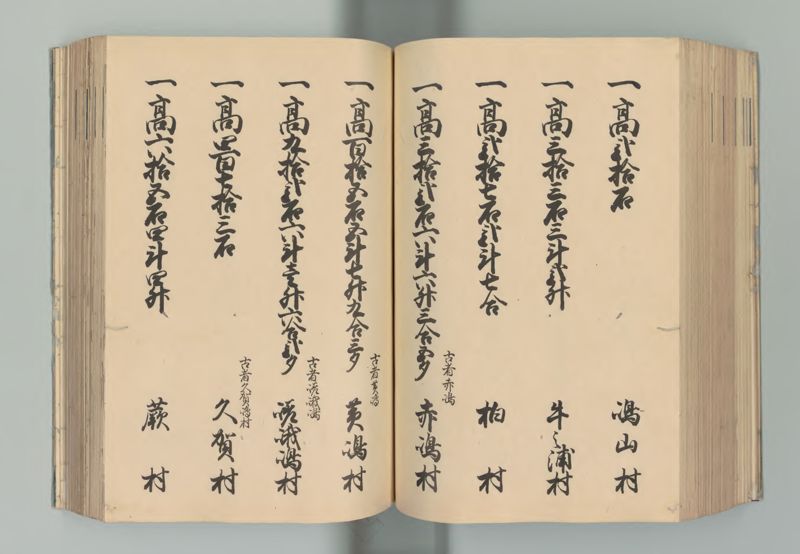 一高弐拾石 嶋山村
一高三拾三石三斗弐升 牛之浦村
一高弐拾七石弐斗七合 柏村
一高三拾弐石六斗六升三合五夕 古者赤嶋 赤嶋村
一高百拾五石五斗七升九合三夕 古者黄嶋 黄嶋村
一高九拾弐石六斗壱升六合弐夕 古者嵯峨嶋 嵯峨嶋村
一高四百七拾三石 古者久賀嶋村 久賀村
一高六拾五石四斗四升 蕨村